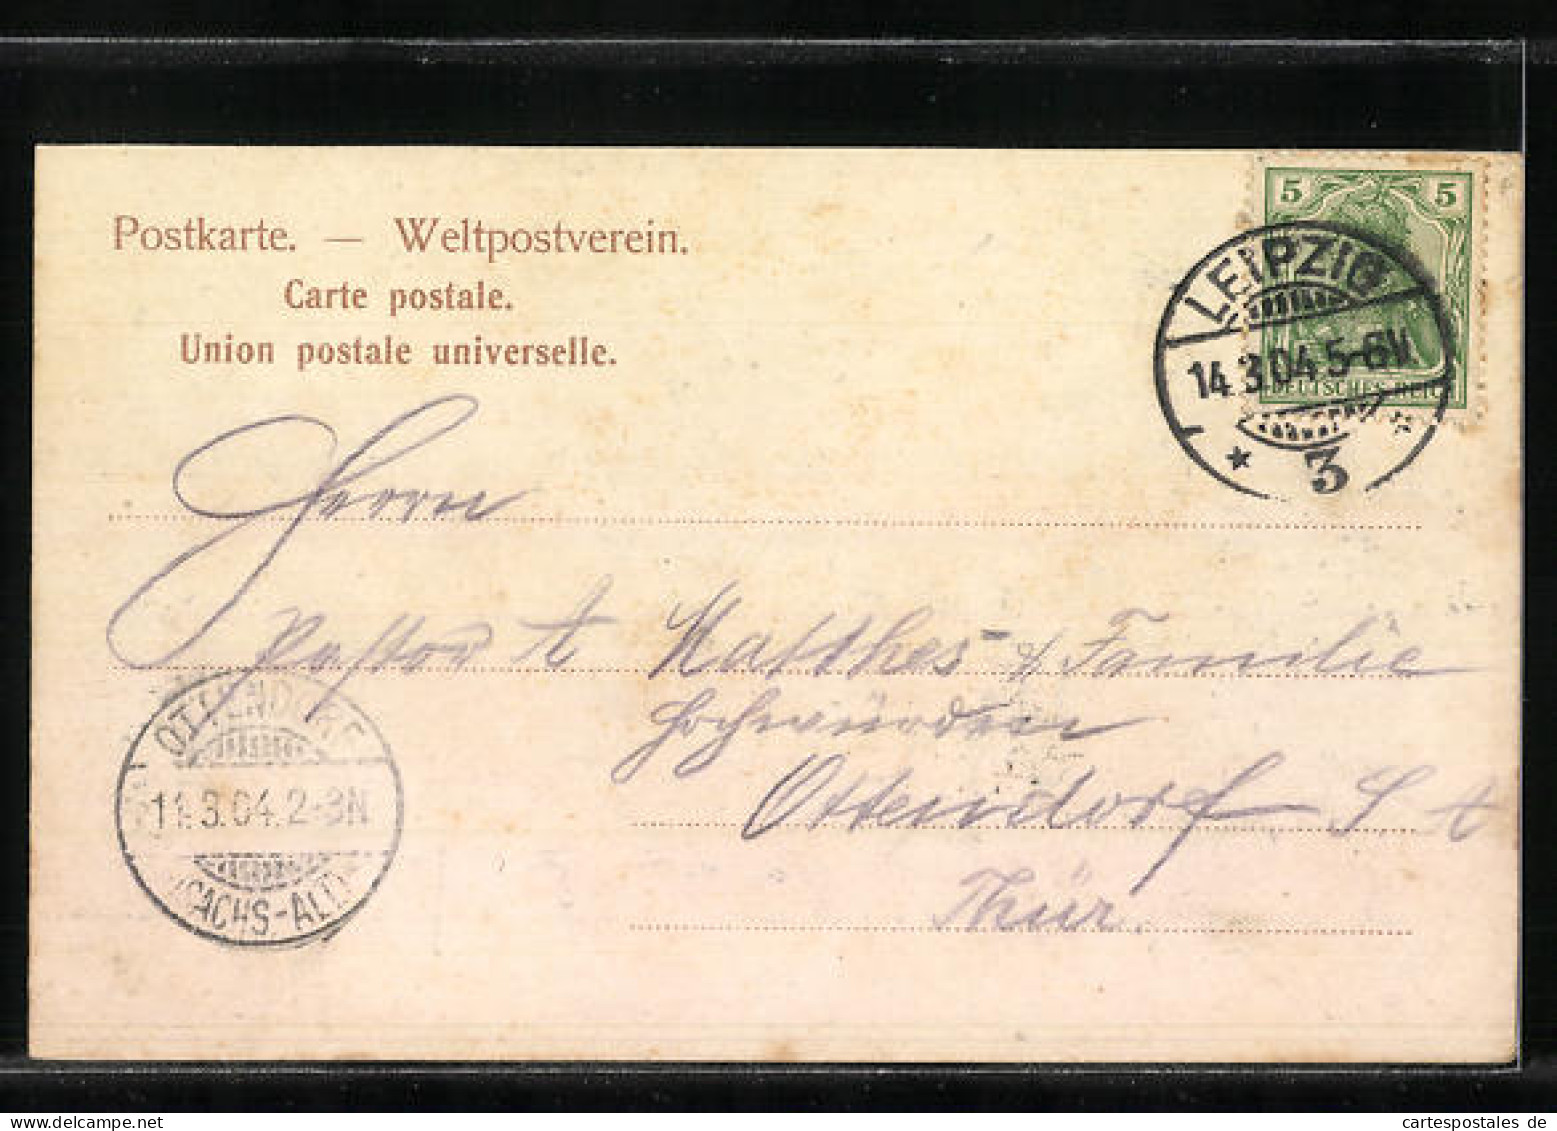 Postkarte. — Weltpostverein.
Carte postale.
Union postale universelle.
5 5
DEUTSCHES REICH
LEIPZIG
14.3.04.5-6V.
* 3 *
Herrn
Pastor A Matthes u/ Familie
Hochwürden
Ottendorf S A
Thür.
OTTENDORF
11.3.04.2-3N
SACHS-ALT
cartespostales de